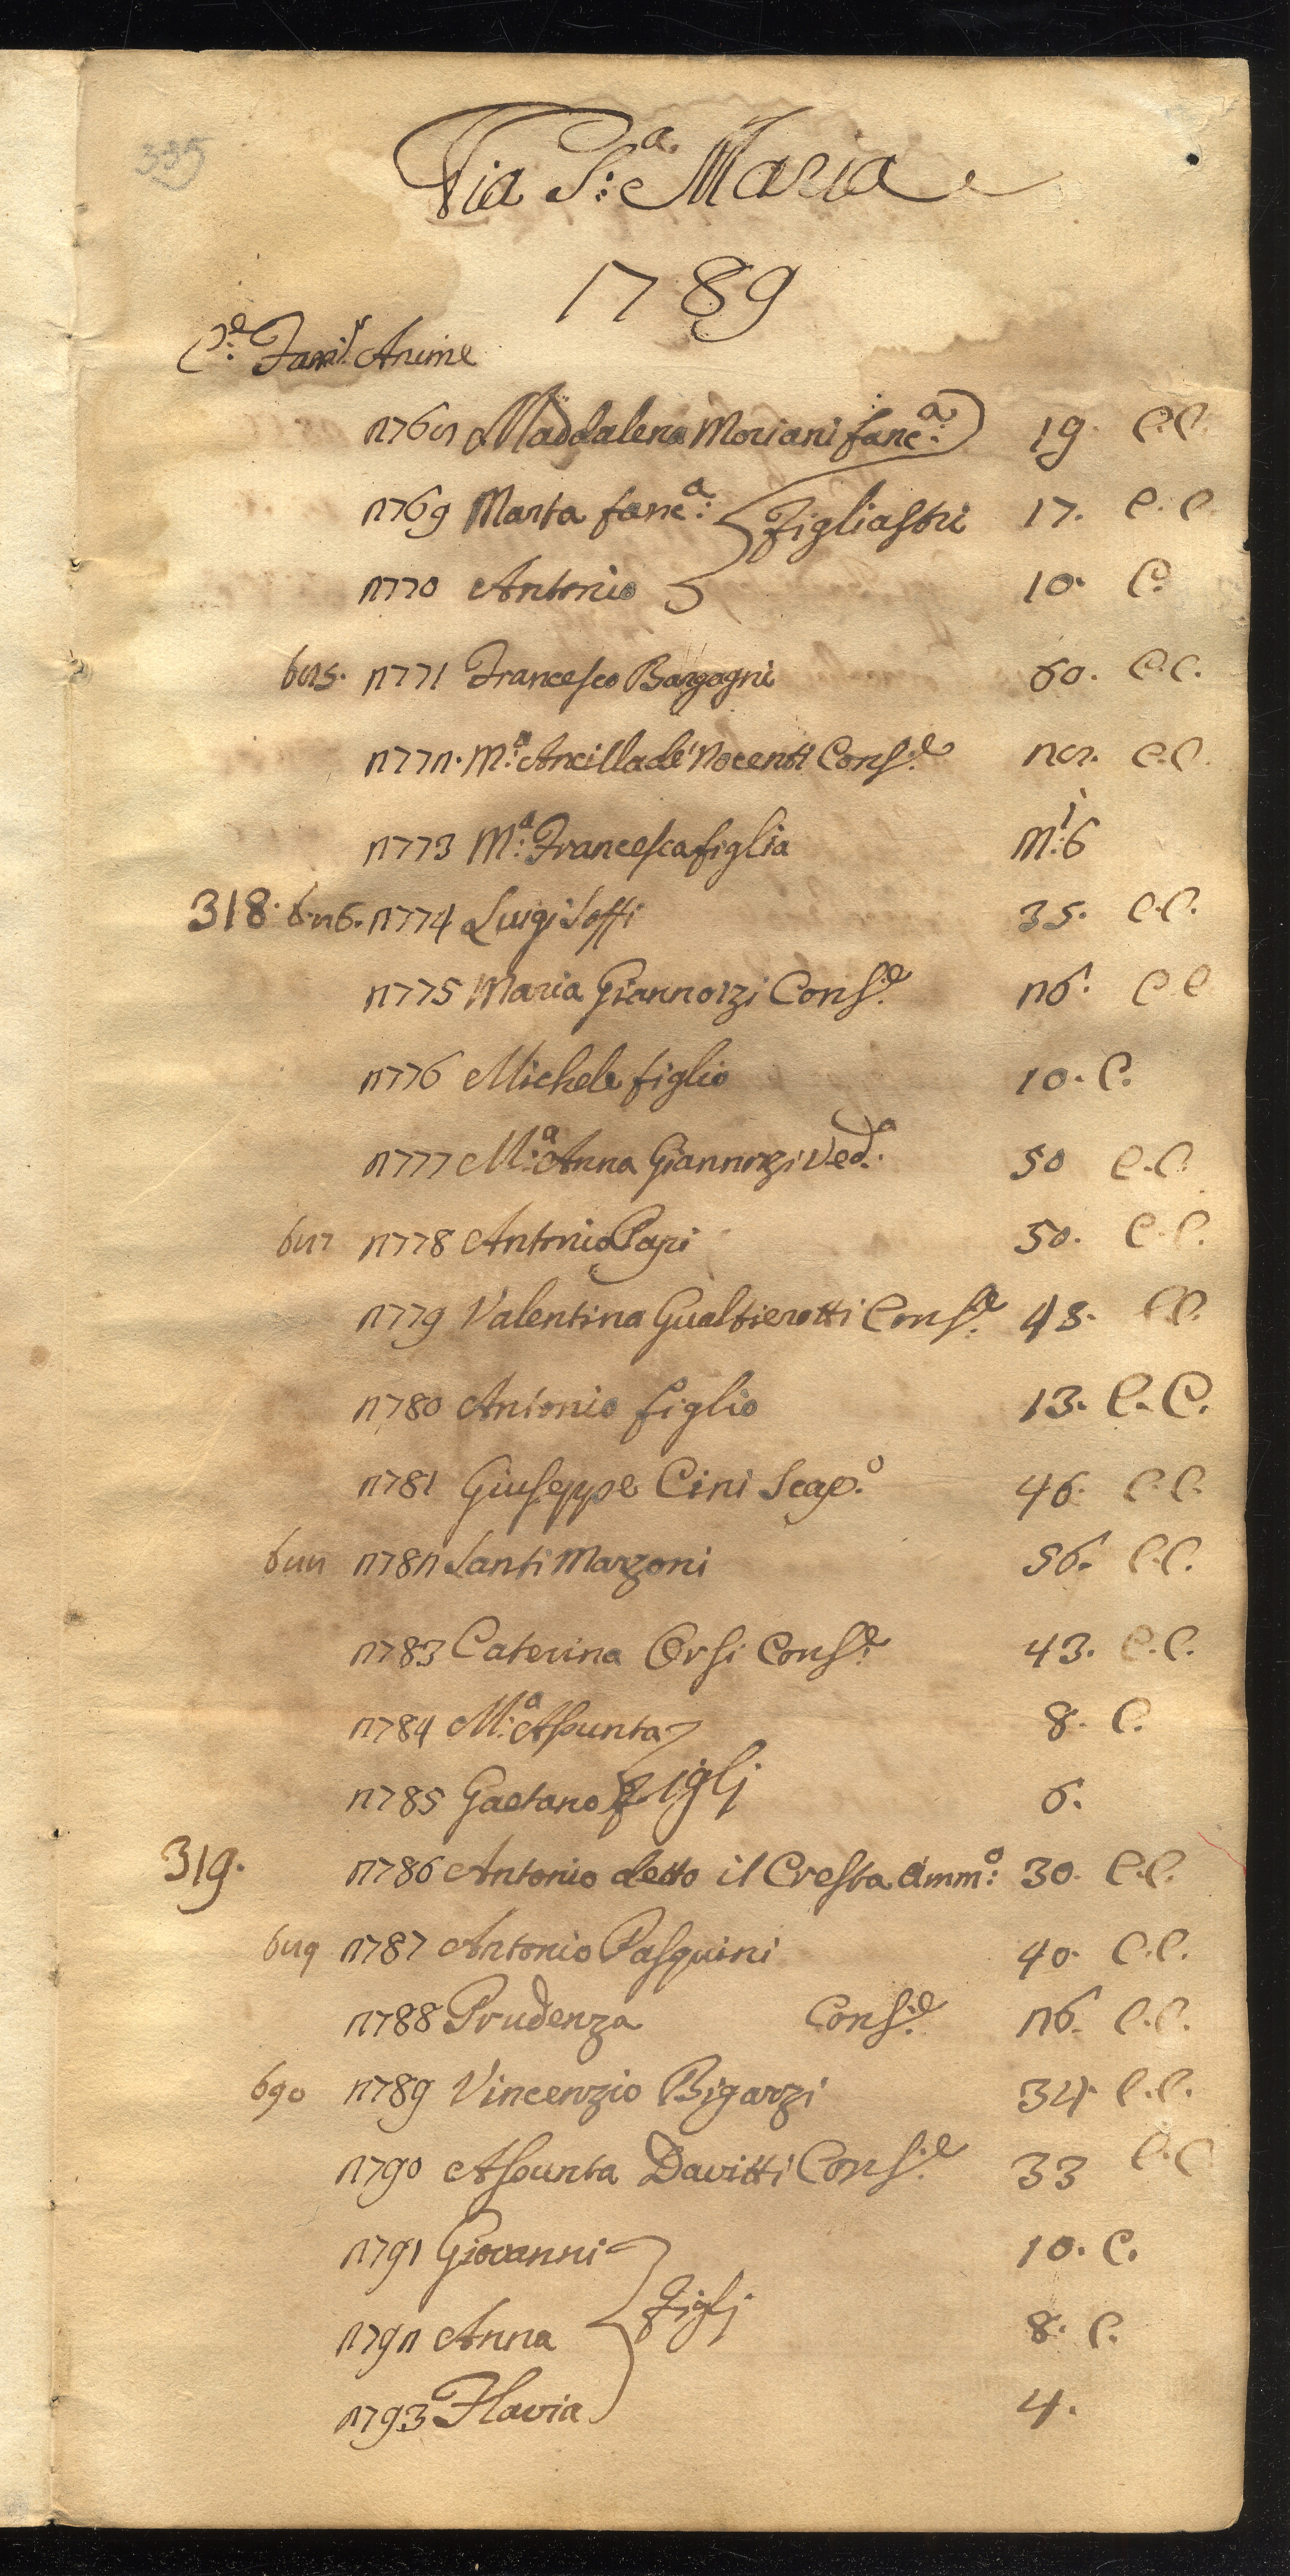 335
Via S:ª Maria
1789
Cᵉ: Famˡ: Anime
2768 Maddalena Moriani fancª: 19. C.C.
2769 Marta fancª: Figliastri 17. C.C.
2770 Antonio 10. C.
685. 2771 Francesco Bargagni 60. C.C.
2772. M:ª Ancilla de' Nocenti Consᵉ: 28. C.C.
2773 M:ª Francesca figlia M:ⁱ 6
318. 686. 2774 Luigi Soffi 35. C.C.
2775 Maria Giannozzi Consᵉ: 26. C.C.
2776 Michele figlio 10. C.
2777 M:ª Anna Giannozzi Ved.ª 50 C.C.
687 2778 Antonio Papi 50. C.C.
2779 Valentina Gualtierotti Consᵉ: 43. C.C.
2780 Antonio figlio 13. C.C.
2781 Giuseppe Cini Scap.º 46. C.C.
688 2782 Santi Marzoni 56. C.C.
2783 Caterina Orsi Consᵉ: 43. C.C.
2784 M:ª Assunta 8. C.
2785 Gaetano Figlj 6.
319. 2786 Antonio detto il Cresta Ammº: 30. C.C.
689 2787 Antonio Pasquini 40. C.C.
2788 Prudenza Consᵉ: 26. C.C.
690 2789 Vincenzio Bigarzi 34. C.C.
2790 Assunta Davitti Consᵉ: 33 C.C
2791 Giovanni 10. C.
2792 Anna Figlj 8. C.
2793 Flavia 4.